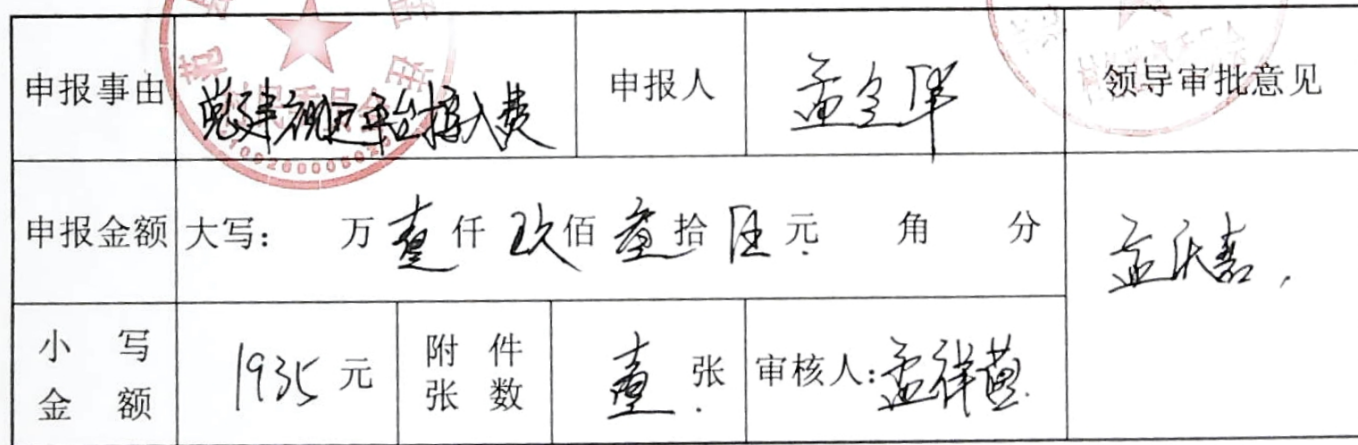 申报事由 党建视频平台接入费 申报人 孟宪军 领导审批意见
申报金额 大写： 万壹仟玖佰叁拾伍元 角 分 孟庆喜
小写金额 1935元 附件张数 壹张 审核人：孟祥
村民委员会